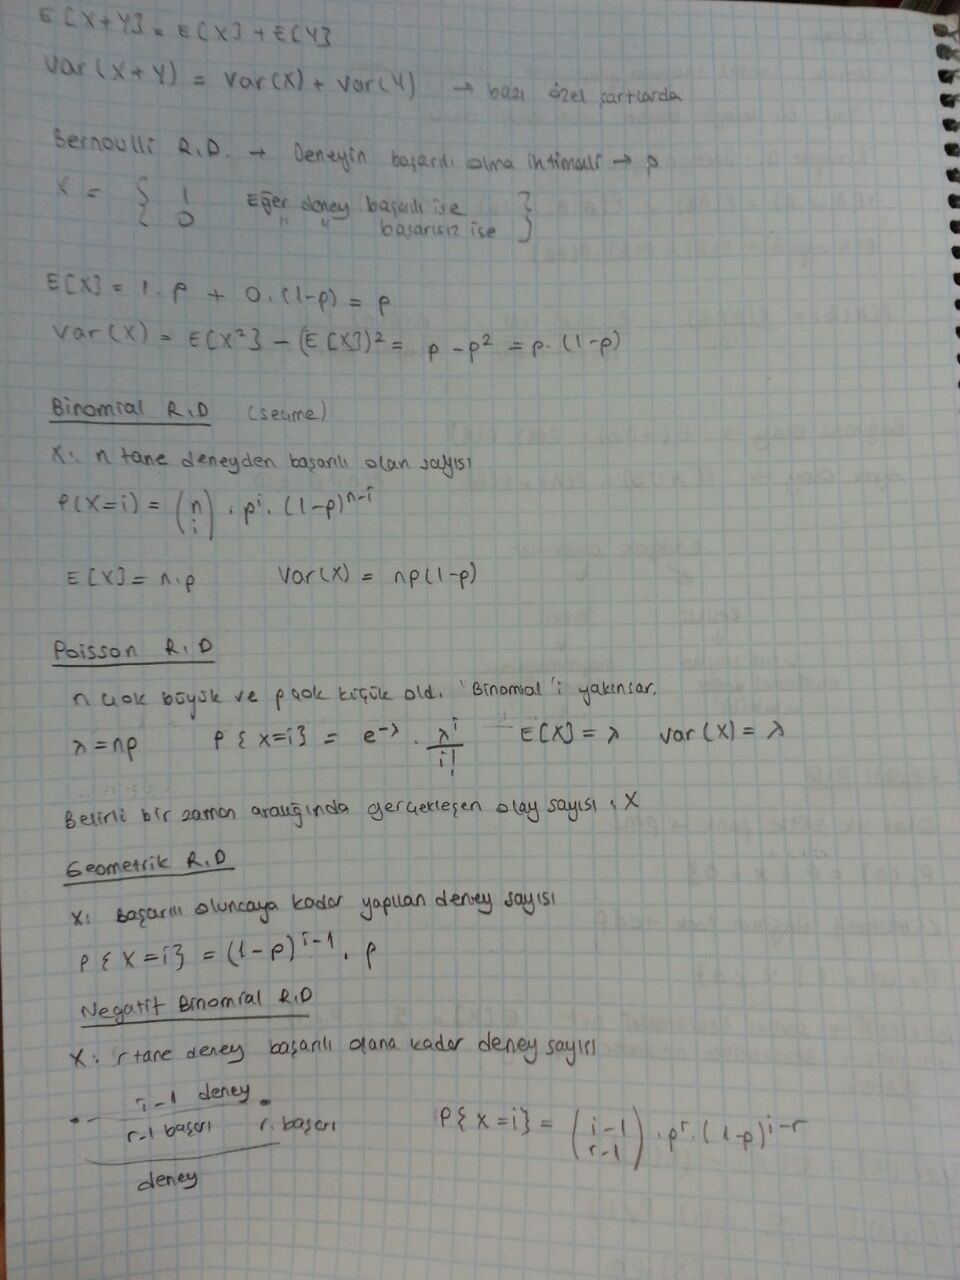 E[X+Y] = E[X] + E[Y]
Var(X+Y) = Var(X) + Var(Y) → bazı özel şartlarda
Bernoulli R.D. → Deneyin başarılı olma ihtimali → p
X = { 1 Eğer deney başarılı ise }
{ 0 " " başarısız ise }
E[X] = 1.p + 0.(1-p) = p
Var(X) = E[X²] - (E[X])² = p - p² = p.(1-p)
Binomial R.D (seçme)
X: n tane deneyden başarılı olan sayısı
P(X=i) = (n i) . pⁱ. (1-p)ⁿ⁻ⁱ
E[X] = n.p Var(X) = np(1-p)
Poisson R.D
n çok büyük ve p çok küçük old. "Binomial"i yakınsar.
λ = np P{X=i} = e^-λ . λⁱ/i! E[X] = λ Var(X) = λ
Belirli bir zaman aralığında gerçekleşen olay sayısı : X
Geometrik R.D
X: Başarılı oluncaya kadar yapılan deney sayısı
P{X=i} = (1-p)^i-1 . p
Negatif Binomial R.D
X: r tane deney başarılı olana kadar deney sayısı
i-1 deney
r-1 başarı r. başarı
P{X=i} = (i-1 r-1) . p^r . (1-p)^i-r
deney